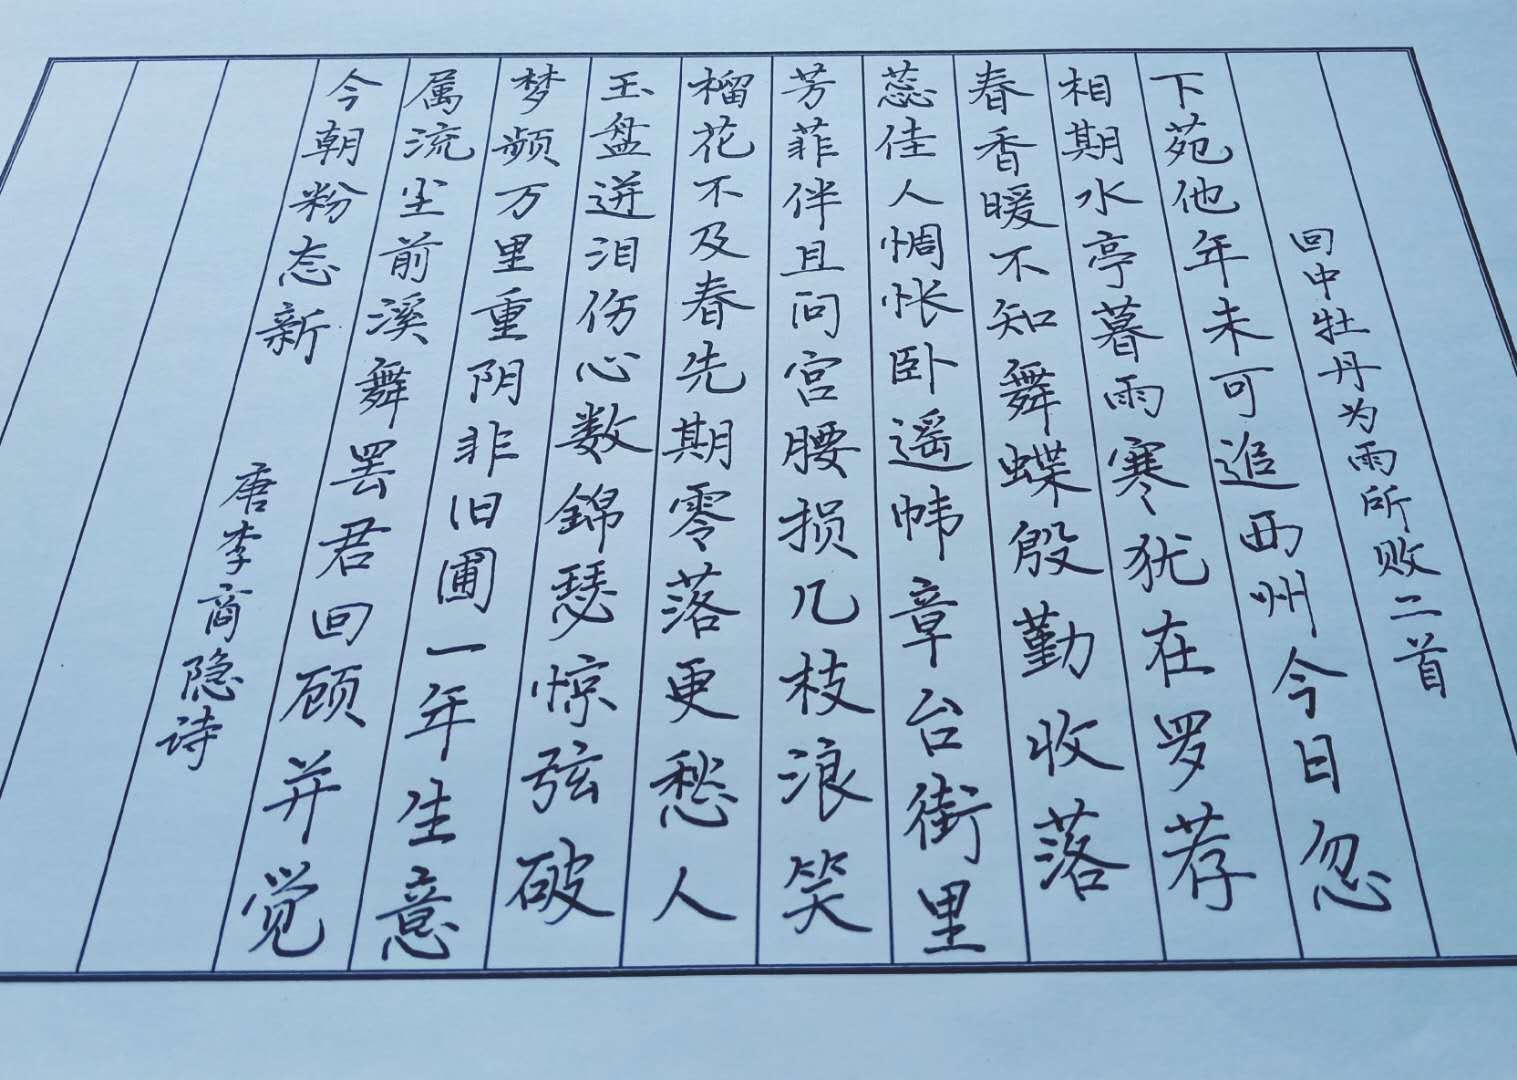 回中牡丹为雨所败二首
下苑他年未可追西州今日忽
相期水亭暮雨寒犹在罗荐
春香暖不知舞蝶殷勤收落
蕊佳人惆怅卧遥帏章台街里
芳菲伴且问宫腰损几枝浪笑
榴花不及春先期零落更愁人
玉盘迸泪伤心数锦瑟惊弦破
梦频万里重阴非旧圃一年生意
属流尘前溪舞罢君回顾并觉
今朝粉态新
唐李商隐诗